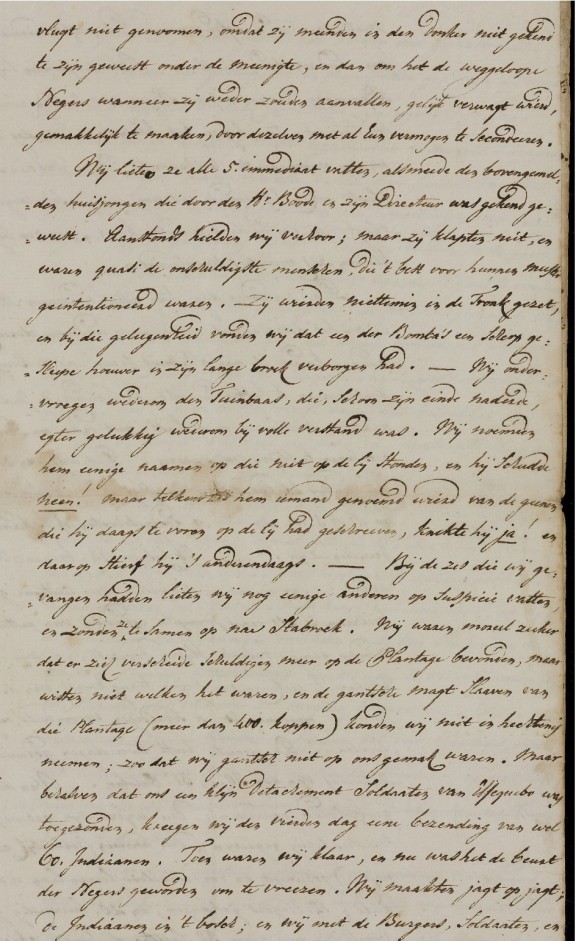 vlugt niet genoomen, omdat zij meenden in den donker niet gekend
te zijn geweest onder de meenigte, en dan om het de weggeloope
Negers wanneer zij weder zouden aanvallen, gelijk verwagt wierd,
gemakkelijk te maaken, door dezelven met al hun vermogen te secondeeren.
Wij lieten ze alle 5. immediaat vatten, alsmeede den bovengemel-
=den huisjongen die door den Hr Boode en zijn Directeur was gekend ge-
=weest. Aanstonds hielden wij verhoor; maar zij klapten niet, en
waren quasi de onschuldigste menschen, die 't best voor hunnen meester
geintentioneerd waren. Zij wierden niettemin in de Tronk gezet,
en bij die gelegentheid vonden wij dat een der Bomba's een scherp ge-
=sleepe houwer in zijn lange broek verborgen had. — Wij onder-
=vroegen wederom den Tuinbaas, die, schoon zijn einde naderde,
egter gelukkig wederom bij volle verstand was. Wij noemden
hem eenige naamen op die niet op de lijst stonden, en hij schudde
neen! maar telkens als hem iemand genoemd wierd van de geenen
die hij daags te voren op de lijst had geschreeven, knikte hij ja! en
daar op stierf hij 's anderendaags. — Bij de zes die wij ge-
=vangen hadden lieten wij nog eenige anderen op suspicie vatten,
en zonden ze te samen op naar Stabroek. Wij waren moreel zeeker
dat er zich verscheide schuldigen meer op de Plantage bevonden, maar
wisten niet welken het waren, en de gantsche magt slaaven van
die Plantage (meer dan 400. koppen) konden wij niet in hechtenis
neemen; zoo dat wij gantsch niet op ons gemak waren. Maar
behalven dat ons een klijn detachement Soldaaten van Essequebo was
toegezonden, kreegen wij den vierden dag eene bezending van wel
60. Indiaanen. Toen waren wij klaar, en nu was het de beurt
der Negers geworden om te vreezen. Wij maakten jagt op jagt;
de Indiaanen in 't bosch; en wij met de Burgers, Soldaaten, en